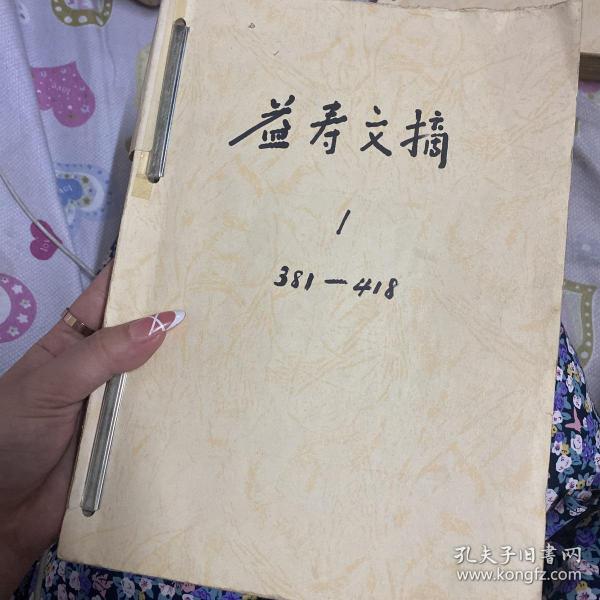 益寿文摘
1
381—418
孔夫子旧书网
www.kongfz.com